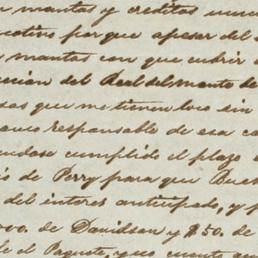 mantas y creditos
motivo por que apesar del
mantas con que cubrir
cción del Real del monte de
sas que me tienen loco sin
responsable de esa ca
endose cumplido el plazo
s de Perry para que Buch
del interes anticipado, y
000. de Davidson y $50. de
el Paquete, y no cuento